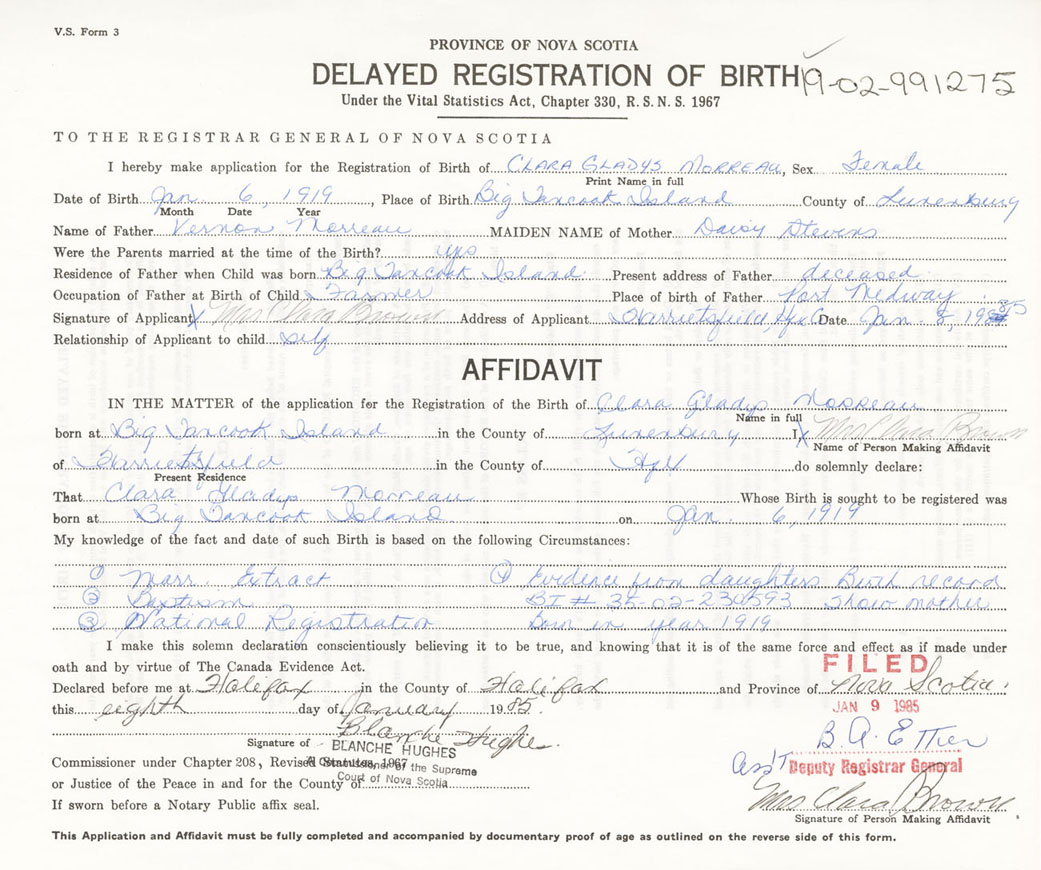 V.S. Form 3
PROVINCE OF NOVA SCOTIA
DELAYED REGISTRATION OF BIRTH 19-02-991275
Under the Vital Statistics Act, Chapter 330, R.S.N.S. 1967
TO THE REGISTRAR GENERAL OF NOVA SCOTIA
I hereby make application for the Registration of Birth of CLARA GLADYS MORREAU, Sex Female
Print Name in full
Date of Birth Jan. 6, 1919, Place of Birth Big Tancook Island County of Lunenburg
Month Date Year
Name of Father Vernon Morreau MAIDEN NAME of Mother Daisy Stevens
Were the Parents married at the time of the Birth? yes
Residence of Father when Child was born Big Tancook Island Present address of Father deceased
Occupation of Father at Birth of Child Farmer Place of birth of Father Port Medway
Signature of Applicant X Mrs Clara Brown Address of Applicant Harrietsfield, Hfx Co Date Jan. 8, 1985
Relationship of Applicant to child self
AFFIDAVIT
IN THE MATTER of the application for the Registration of the Birth of Clara Gladys Morreau
Name in full
born at Big Tancook Island in the County of Lunenburg I, X Mrs Clara Brown
Name of Person Making Affidavit
of Harrietsfield in the County of Hfx do solemnly declare:
Present Residence
That Clara Gladys Morreau Whose Birth is sought to be registered was
born at Big Tancook Island on Jan. 6, 1919
My knowledge of the fact and date of such Birth is based on the following Circumstances:
① Marr. Extract ④ Evidence from daughters Birth record
② Baptism BI # 35-02-230593 Show mother
③ National Registration born in year 1919
I make this solemn declaration conscientiously believing it to be true, and knowing that it is of the same force and effect as if made under
oath and by virtue of The Canada Evidence Act.
FILED
Declared before me at Halifax in the County of Halifax and Province of Nova Scotia.
this eighth day of January 1985.
JAN 9 1985
Blanche Hughes
Signature of BLANCHE HUGHES
B. A. Etter
Commissioner under Chapter 208, Revised Statutes, 1967
A Commissioner of the Supreme
Court of Nova Scotia
Ass't Deputy Registrar General
or Justice of the Peace in and for the County of
Mrs Clara Brown
If sworn before a Notary Public affix seal.
Signature of Person Making Affidavit
This Application and Affidavit must be fully completed and accompanied by documentary proof of age as outlined on the reverse side of this form.